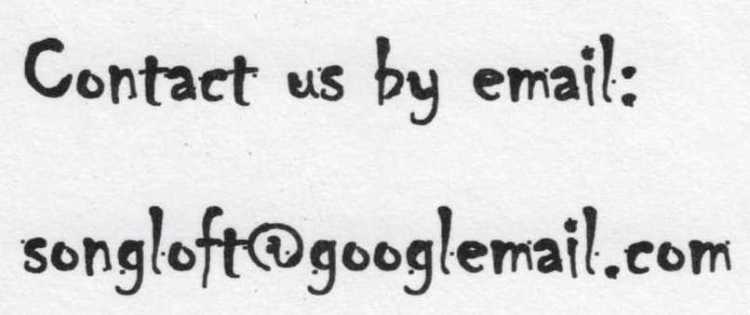 Contact us by email:
songloft@googlemail.com